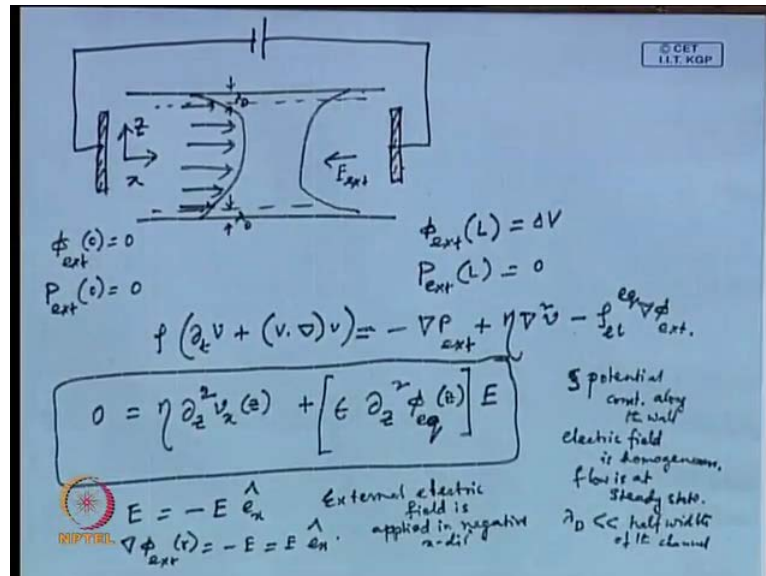 © CET
I.I.T. KGP
λ_D
z
x
E_ext
λ_D
ϕ_ext(0) = 0
P_ext(0) = 0
ϕ_ext(L) = ΔV
P_ext(L) = 0
ρ(∂_t v + (v.∇)v) = - ∇P_ext + η∇²v - ρ_el^eq ∇ϕ_ext.
0 = η ∂_z² v_x(z) + [ϵ ∂_z² ϕ_eq(z)] E
ζ potential
const. along
the wall
electric field
is homogeneous,
flow is at
steady state.
λ_D << half width
of the channel
E = - E ê_x
∇ϕ_ext(r) = - E = E ê_x.
External electric
field is
applied in negative
x-dir
NPTEL